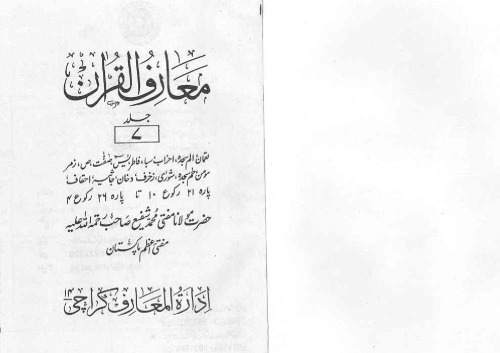 معارف القرآن
جلد
۷
لقمان، الم سجدہ، احزاب، سبا، فاطر، یٰس، صٰفّٰت، ص، زمر
مؤمن، حٰم سجدہ، شوریٰ، زخرف، دخان، جاثیہ، احقاف
پارہ ۲۱ رکوع ۱۰ تا پارہ ۲۶ رکوع ۴
حضرت مولانا مفتی محمد شفیع صاحب رحمۃ اللہ علیہ
مفتی اعظم پاکستان
ادارۃ المعارف کراچی ۱۴